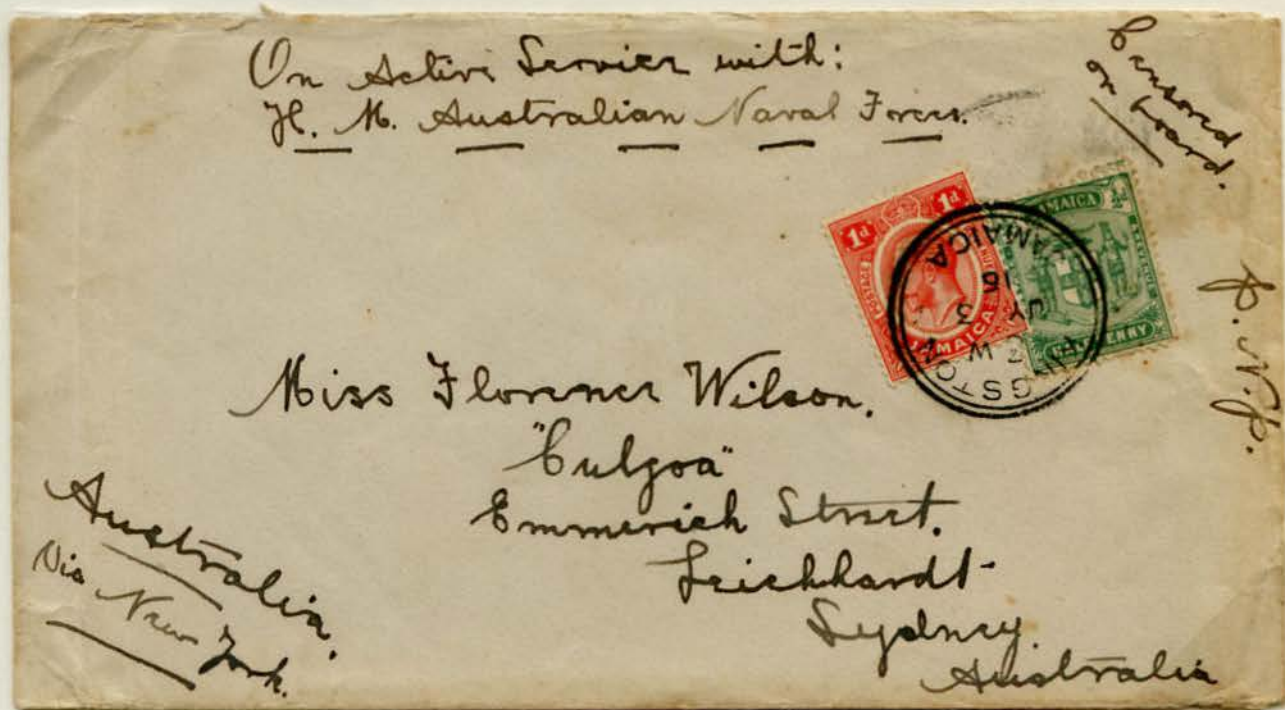 On Active Service with:
H. M. Australian Naval Forces.
Censored
on board.
1d 1d
POSTAGE REVENUE
JAMAICA
½d
JAMAICA
REVENUE
HALFPENNY
KINGSTON
JY 3
16
JAMAICA
Miss Florence Wilson.
"Culgoa"
Emmerick Street.
Leichhardt
Sydney
Australia
Australia.
Via New York.